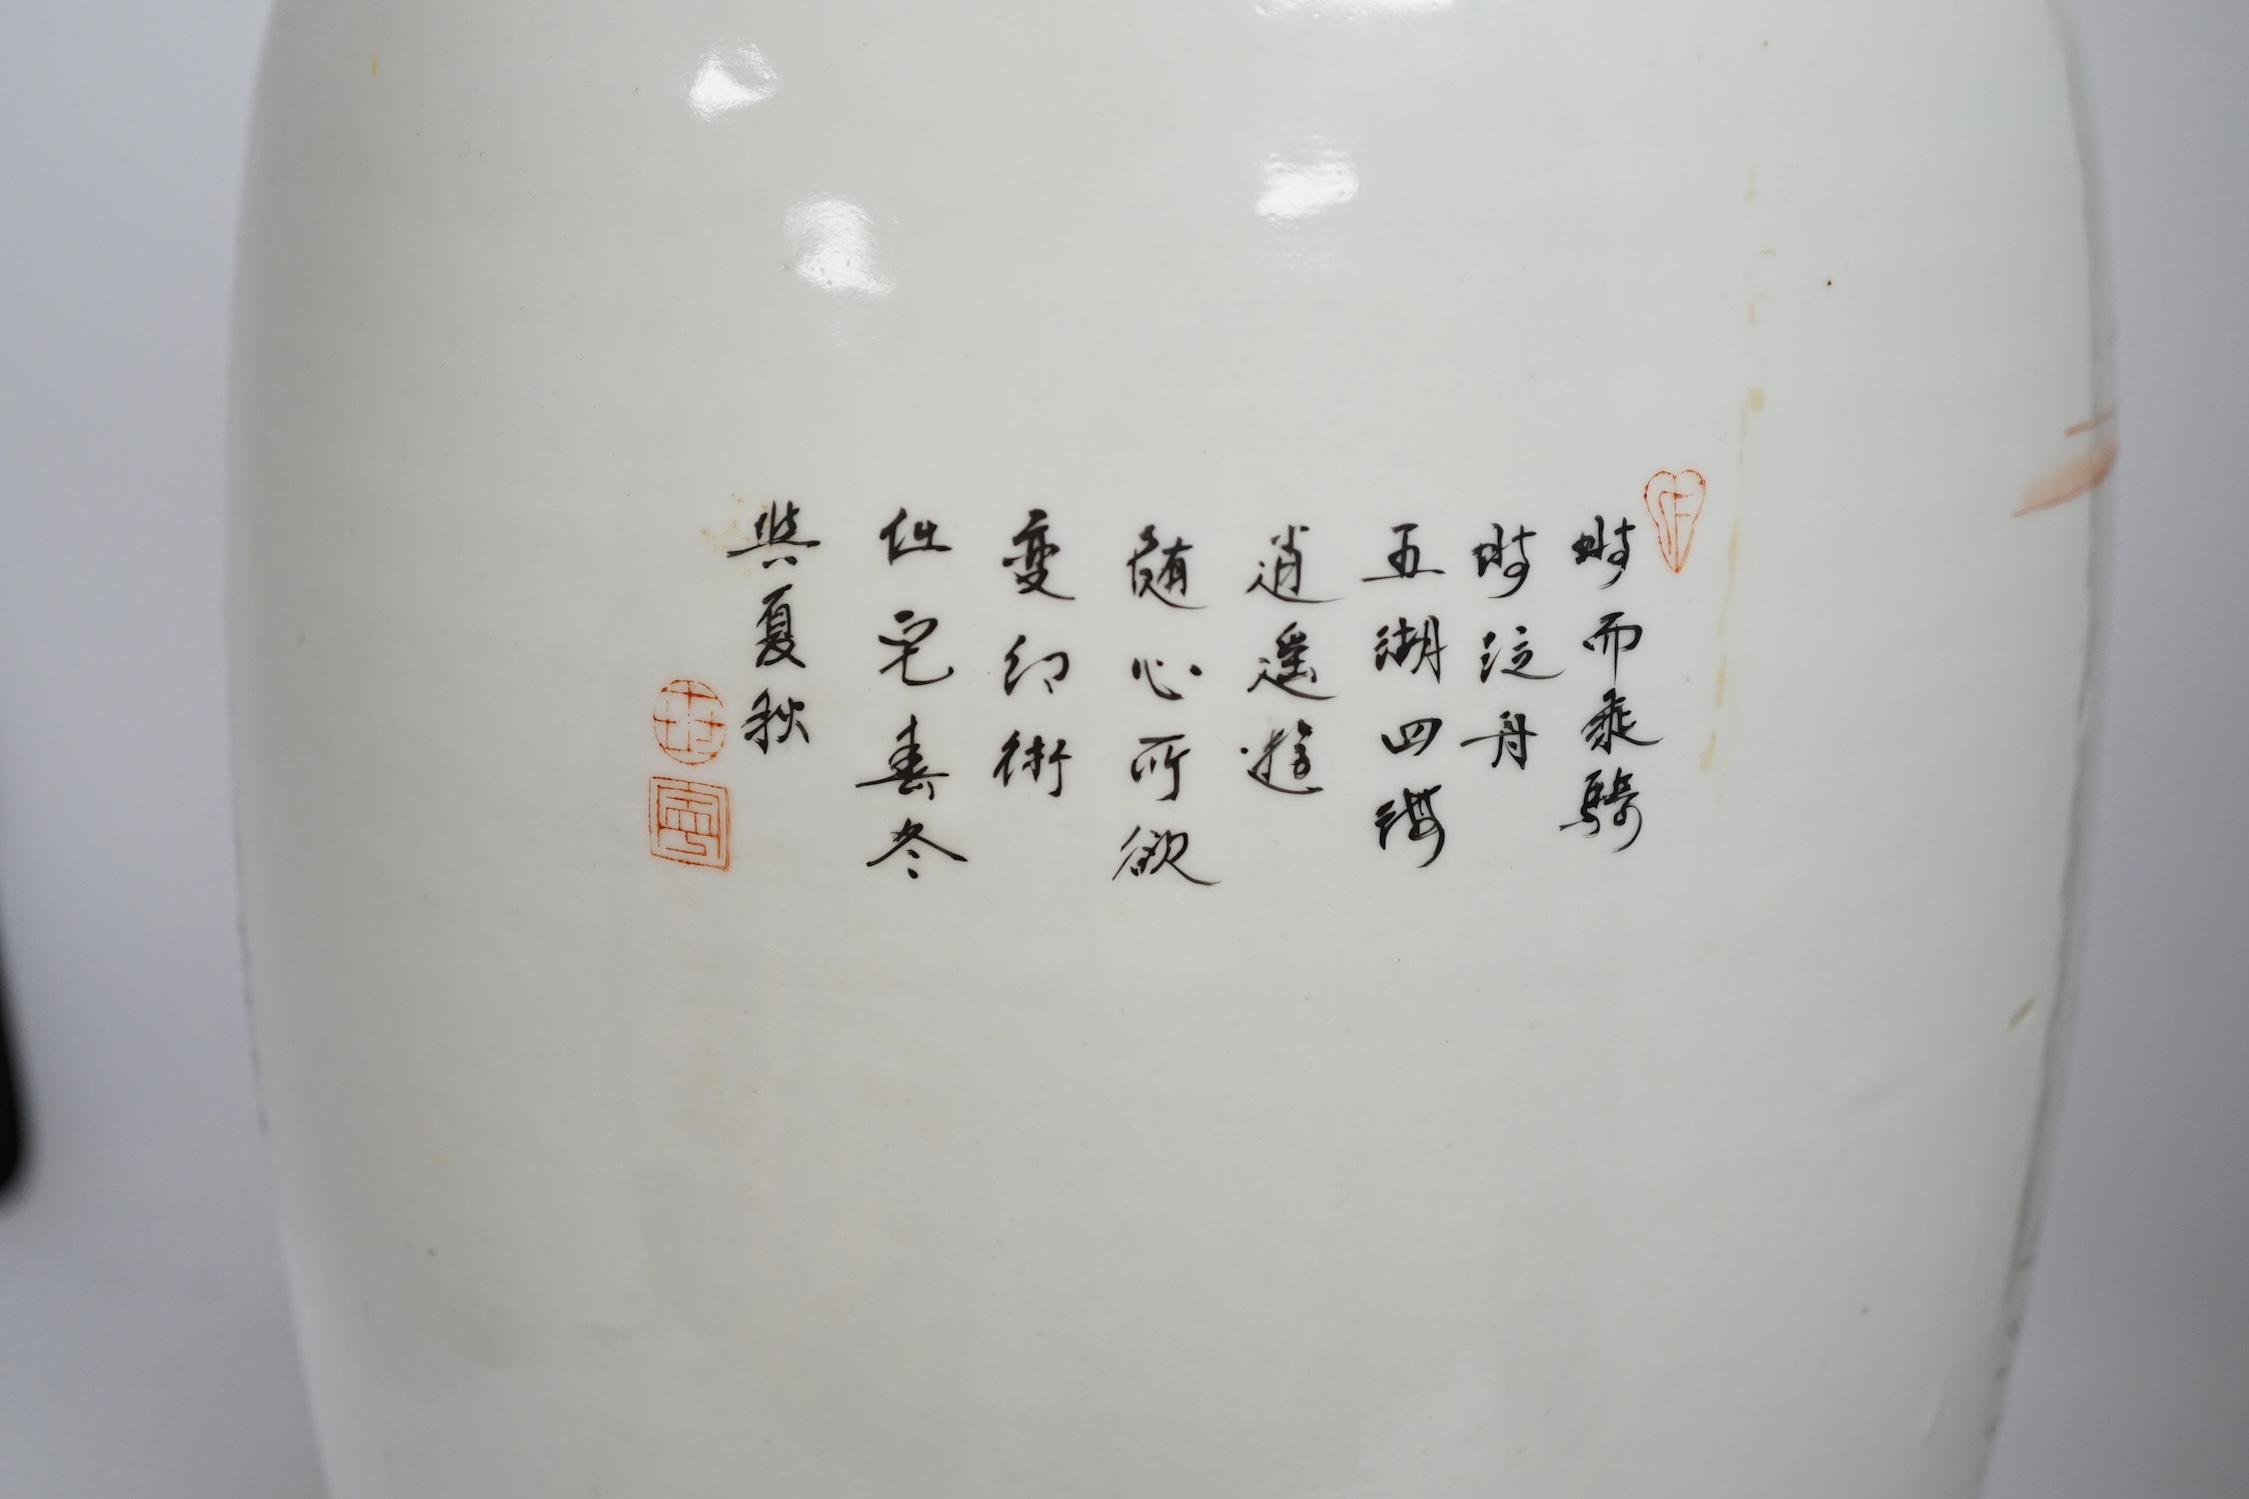 時而乘騎
時泛舟
五湖四海
逍遙遊
隨心所欲
變幻術
任宅春冬
與夏秋